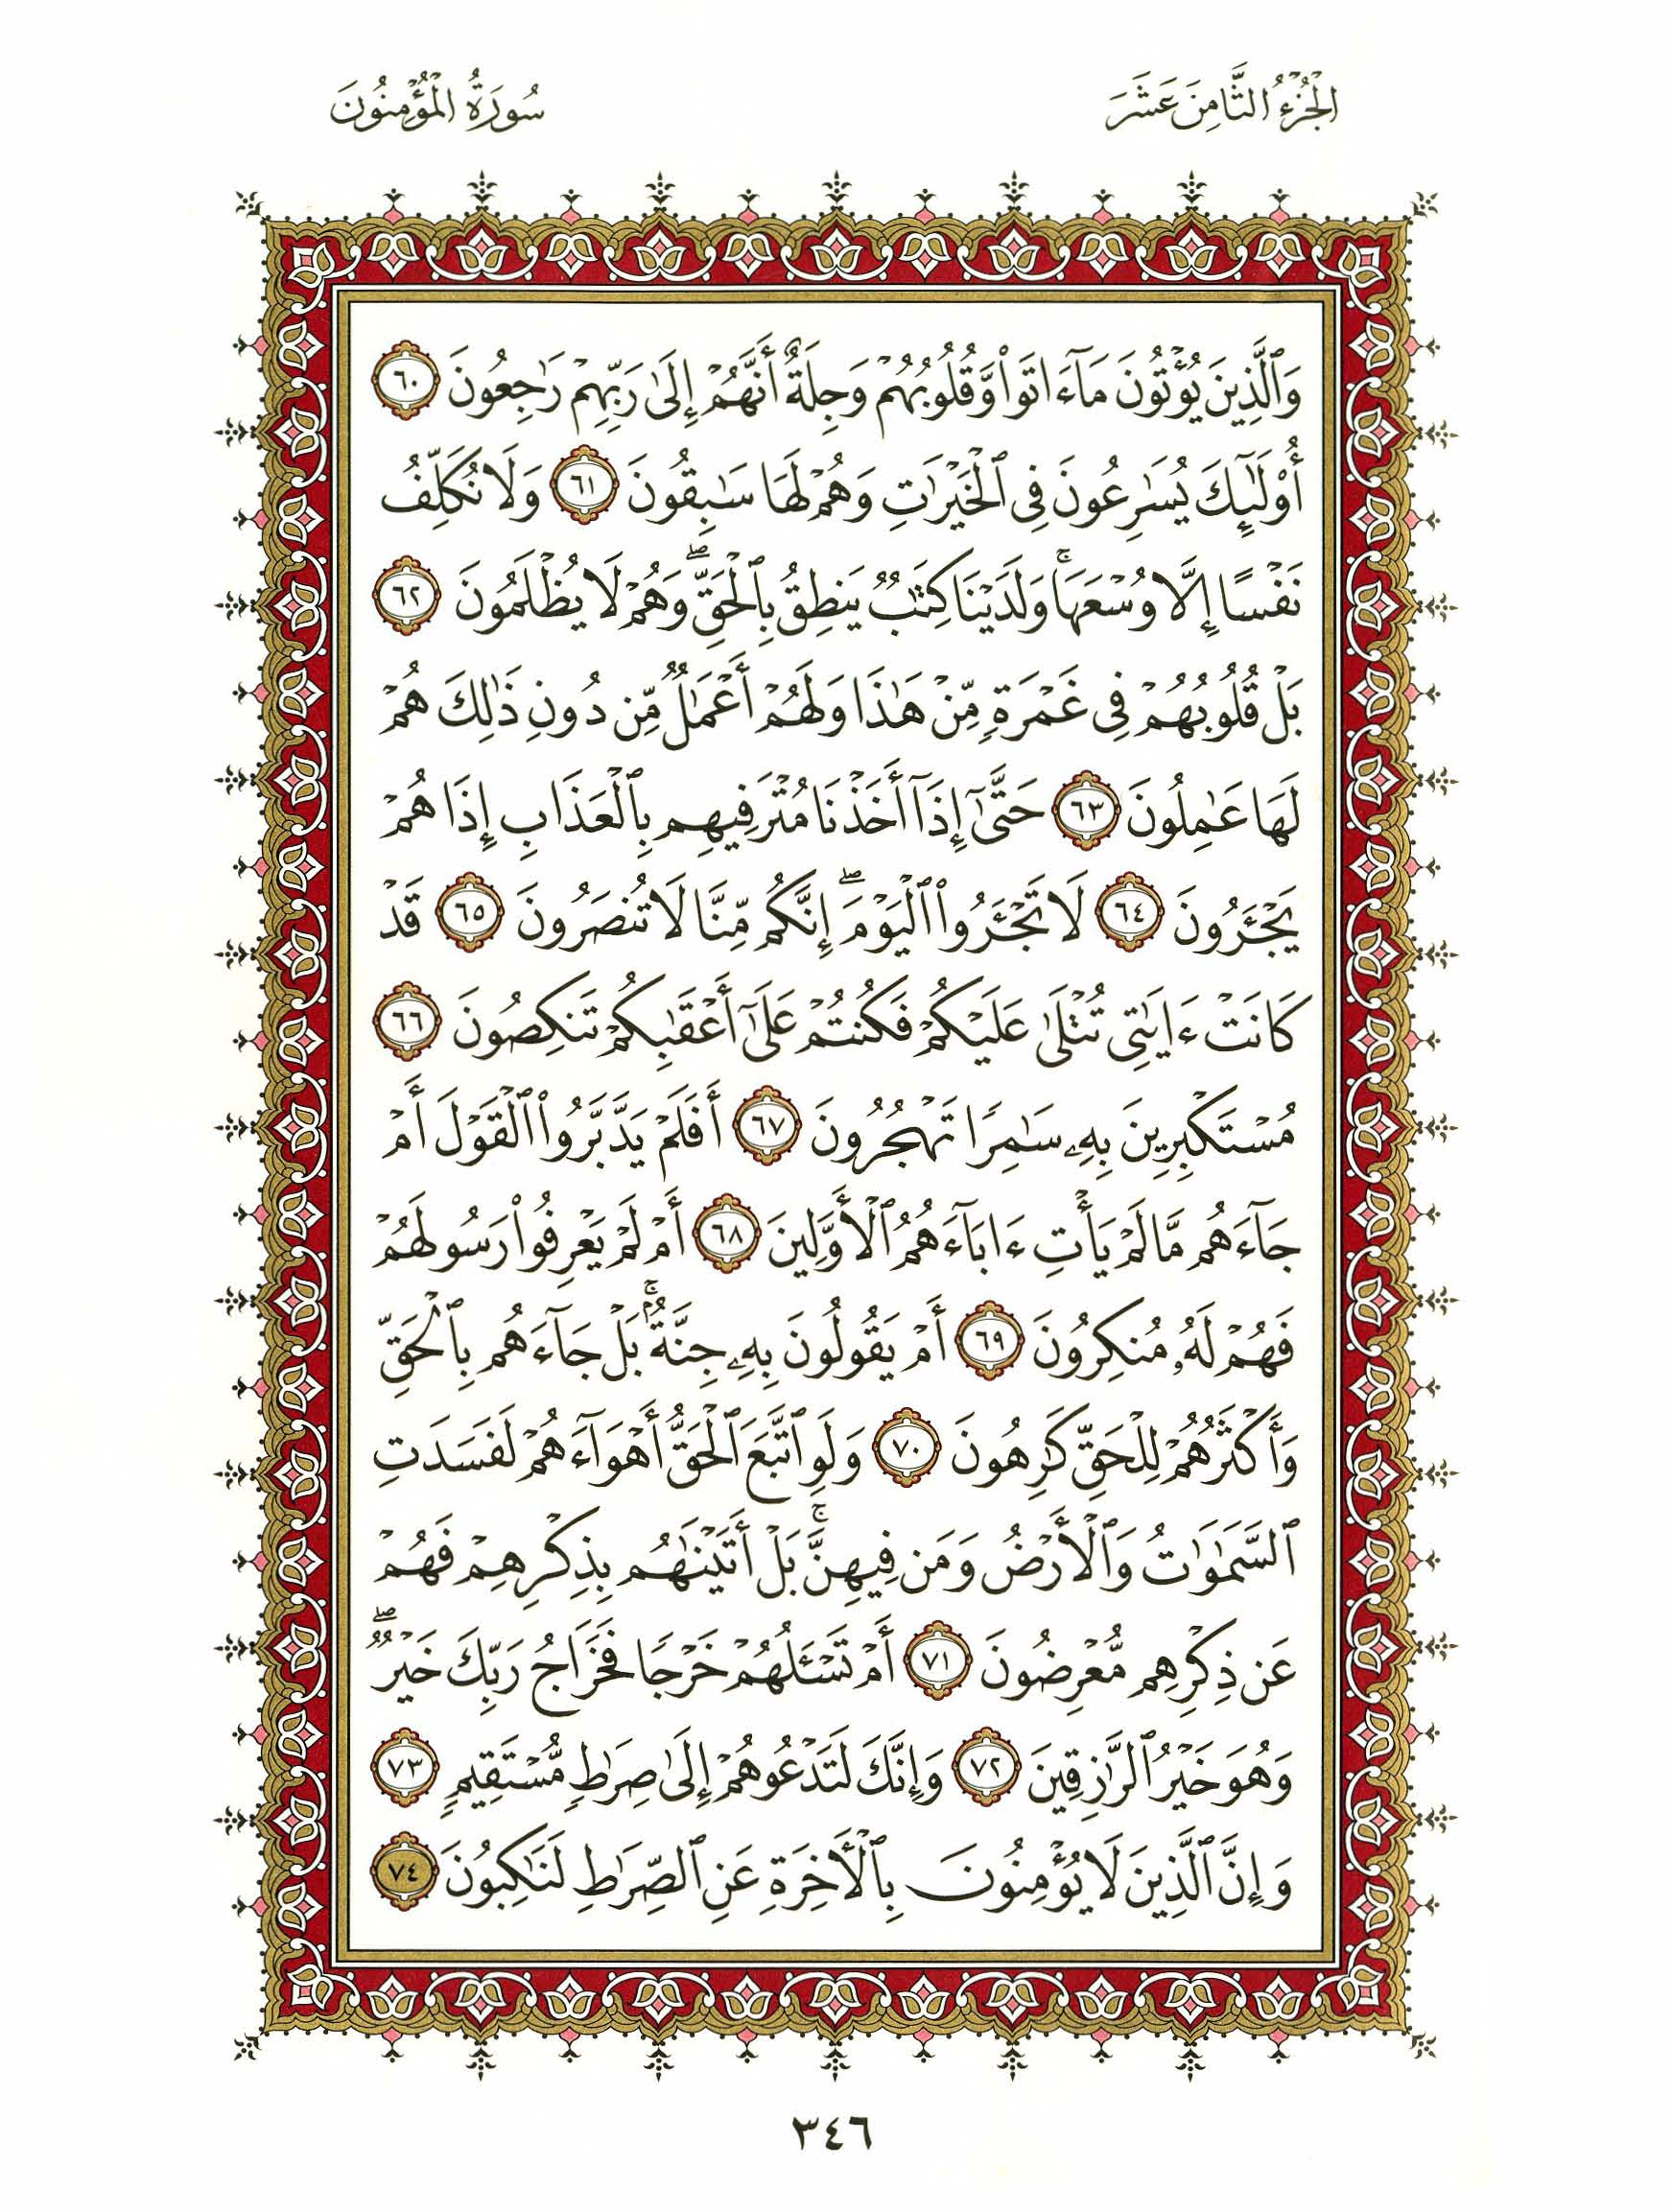 الجُزْءُ الثَّامِنَ عَشَرَ
سُورَةُ المُؤْمِنُونَ
وَٱلَّذِينَ يُؤْتُونَ مَآ ءَاتَوا۟ وَّقُلُوبُهُمْ وَجِلَةٌ أَنَّهُمْ إِلَىٰ رَبِّهِمْ رَٰجِعُونَ ٦٠
أُو۟لَٰٓئِكَ يُسَٰرِعُونَ فِى ٱلْخَيْرَٰتِ وَهُمْ لَهَا سَٰبِقُونَ ٦١ وَلَا نُكَلِّفُ
نَفْسًا إِلَّا وُسْعَهَا ۚ وَلَدَيْنَا كِتَٰبٌ يَنطِقُ بِٱلْحَقِّ ۖ وَهُمْ لَا يُظْلَمُونَ ٦٢
بَلْ قُلُوبُهُمْ فِى غَمْرَةٍ مِّنْ هَٰذَا وَلَهُمْ أَعْمَٰلٌ مِّن دُونِ ذَٰلِكَ هُمْ
لَهَا عَٰمِلُونَ ٦٣ حَتَّىٰٓ إِذَآ أَخَذْنَا مُتْرَفِيهِم بِٱلْعَذَابِ إِذَا هُمْ
يَجْـَٔرُونَ ٦٤ لَا تَجْـَٔرُوا۟ ٱلْيَوْمَ ۖ إِنَّكُم مِّنَّا لَا تُنصَرُونَ ٦٥ قَدْ
كَانَتْ ءَايَٰتِى تُتْلَىٰ عَلَيْكُمْ فَكُنتُمْ عَلَىٰٓ أَعْقَٰبِكُمْ تَنكِصُونَ ٦٦
مُسْتَكْبِرِينَ بِهِۦ سَٰمِرًا تَهْجُرُونَ ٦٧ أَفَلَمْ يَدَّبَّرُوا۟ ٱلْقَوْلَ أَمْ
جَآءَهُم مَّا لَمْ يَأْتِ ءَابَآءَهُمُ ٱلْأَوَّلِينَ ٦٨ أَمْ لَمْ يَعْرِفُوا۟ رَسُولَهُمْ
فَهُمْ لَهُۥ مُنكِرُونَ ٦٩ أَمْ يَقُولُونَ بِهِۦ جِنَّةٌۢ ۚ بَلْ جَآءَهُم بِٱلْحَقِّ
وَأَكْثَرُهُمْ لِلْحَقِّ كَٰرِهُونَ ٧٠ وَلَوِ ٱتَّبَعَ ٱلْحَقُّ أَهْوَآءَهُمْ لَفَسَدَتِ
ٱلسَّمَٰوَٰتُ وَٱلْأَرْضُ وَمَن فِيهِنَّ ۚ بَلْ أَتَيْنَٰهُم بِذِكْرِهِمْ فَهُمْ
عَن ذِكْرِهِم مُّعْرِضُونَ ٧١ أَمْ تَسْـَٔلُهُمْ خَرْجًا فَخَرَاجُ رَبِّكَ خَيْرٌ ۖ
وَهُوَ خَيْرُ ٱلرَّٰزِقِينَ ٧٢ وَإِنَّكَ لَتَدْعُوهُمْ إِلَىٰ صِرَٰطٍ مُّسْتَقِيمٍ ٧٣
وَإِنَّ ٱلَّذِينَ لَا يُؤْمِنُونَ بِٱلْأَخِرَةِ عَنِ ٱلصِّرَٰطِ لَنَٰكِبُونَ ٧٤
٣٤٦